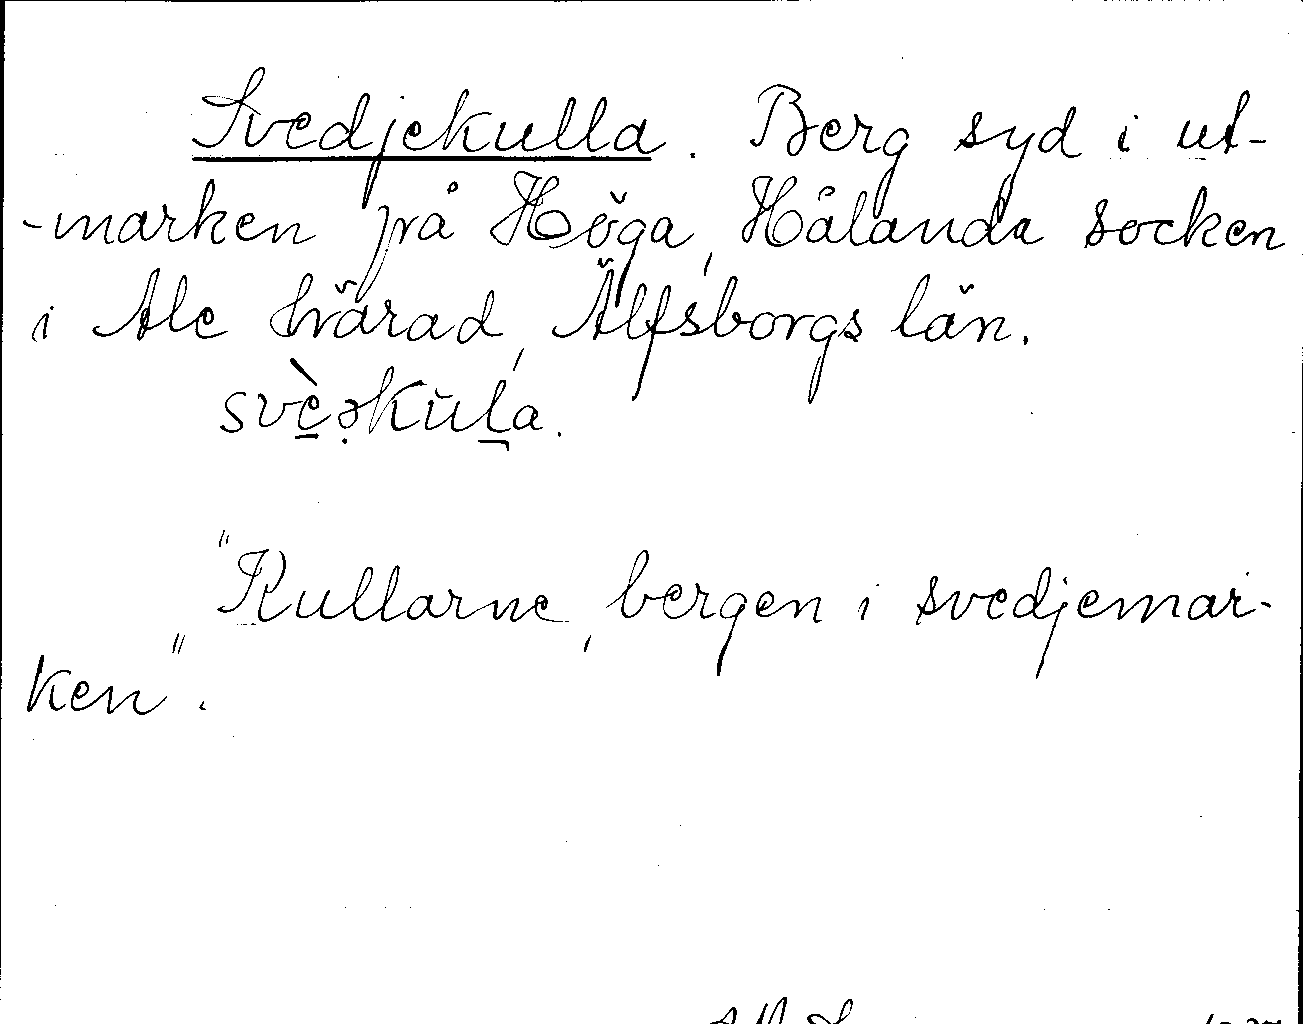 Svedjekulla. Berg syd i ut-
-marken på Höga, Hålanda socken
i Ale härad, Älfsborgs län.
svè̱ə̣kŭḻa.
"Kullarne, bergen i svedjemar-
ken".